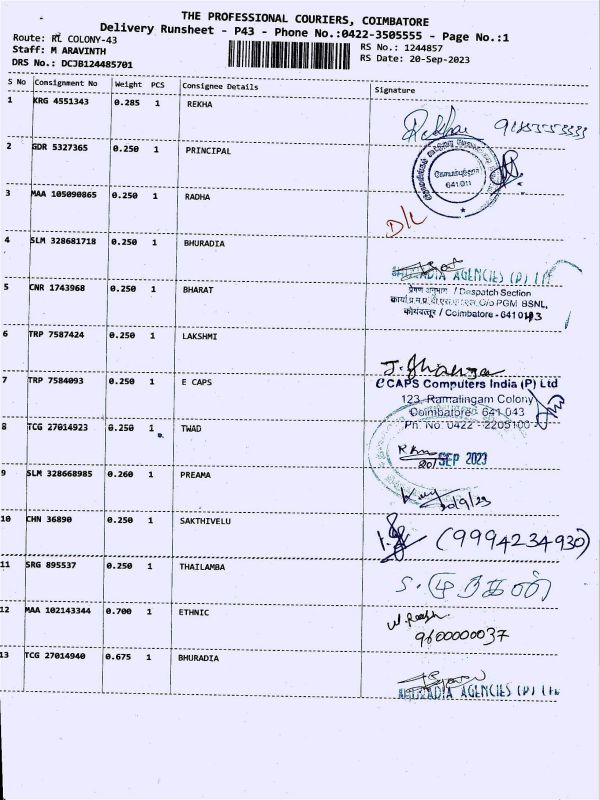 THE PROFESSIONAL COURIERS, COIMBATORE
Delivery Runsheet - P43 - Phone No.:0422-3505555 - Page No.:1
Route: RL COLONY-43
RS No.: 1244857
Staff: M ARAVINTH
RS Date: 20-Sep-2023
DRS No.: DCJB124485701
S No Consignment No Weight PCS Consignee Details Signature
1 KRG 4551343 0.285 1 REKHA
Rekha
2 GDR 5327365 0.250 1 PRINCIPAL
641 011
3 MAA 105090865 0.250 1 RADHA
D/L
4 SLM 328681718 0.250 1 BHURADIA
BHURADIA AGENCIES (P) LTD
5 CNR 1743968 0.250 1 BHARAT
प्रेषण अनुभाग / Despatch Section
C/o PGM BSNL,
कोयंबत्तूर / Coimbatore - 641 043
6 TRP 7587424 0.250 1 LAKSHMI
7 TRP 7584093 0.250 1 E CAPS
eCAPS Computers India (P) Ltd
123, Ramalingam Colony
Coimbatore 641 043
Ph. No. 0422 - 2205100
8 TCG 27014923 0.250 1 TWAD
20/ SEP 2023
9 SLM 328668985 0.260 1 PREAMA
20/9/23
10 CHN 36890 0.250 1 SAKTHIVELU
(9994234930)
11 SRG 895537 0.250 1 THAILAMBA
க. முருகன்
12 MAA 102143344 0.700 1 ETHNIC
9600000037
13 TCG 27014940 0.675 1 BHURADIA
BHURADIA AGENCIES (P) LTD